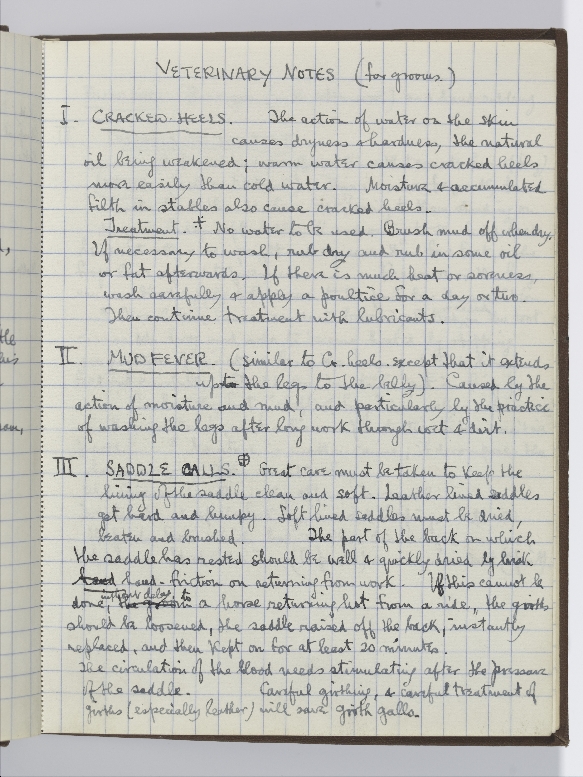 VETERINARY NOTES (for grooms.)
I. CRACKED HEELS. The action of water on the skin
causes dryness & hardness, the natural
oil being weakened; warm water causes cracked heels
more easily than cold water. Moisture & accumulated
filth in stables also cause cracked heels.
Treatment. ‡ No water to be used. Brush mud off when dry.
If necessary to wash, rub dry and rub in some oil
or fat afterwards. If there is much heat or soreness,
wash carefully & apply a poultice for a day or two.
Then continue treatment with lubricants.
II. MUD FEVER. (similar to Cr. heels except that it extends
up to the legs to the belly). Caused by the
action of moisture and mud, and particularly by the practice
of washing the legs after long work through wet & dirt.
III. SADDLE GALLS. Great care must be taken to keep the
lining of the saddle clean and soft. Leather lined saddles
get hard and lumpy. Soft lined saddles must be dried,
beaten and brushed. The part of the back on which
the saddle has rested should be well & quickly dried by brisk
hand hand-friction on returning from work. If this cannot be
without delay, to
done, the groom a horse returning hot from a ride, the girths
should be loosened, the saddle raised off the back, instantly
replaced, and then kept on for at least 20 minutes.
The circulation of the blood needs stimulating after the pressure
of the saddle. Careful girthing, & careful treatment of
girths (especially leather) will save girth galls.